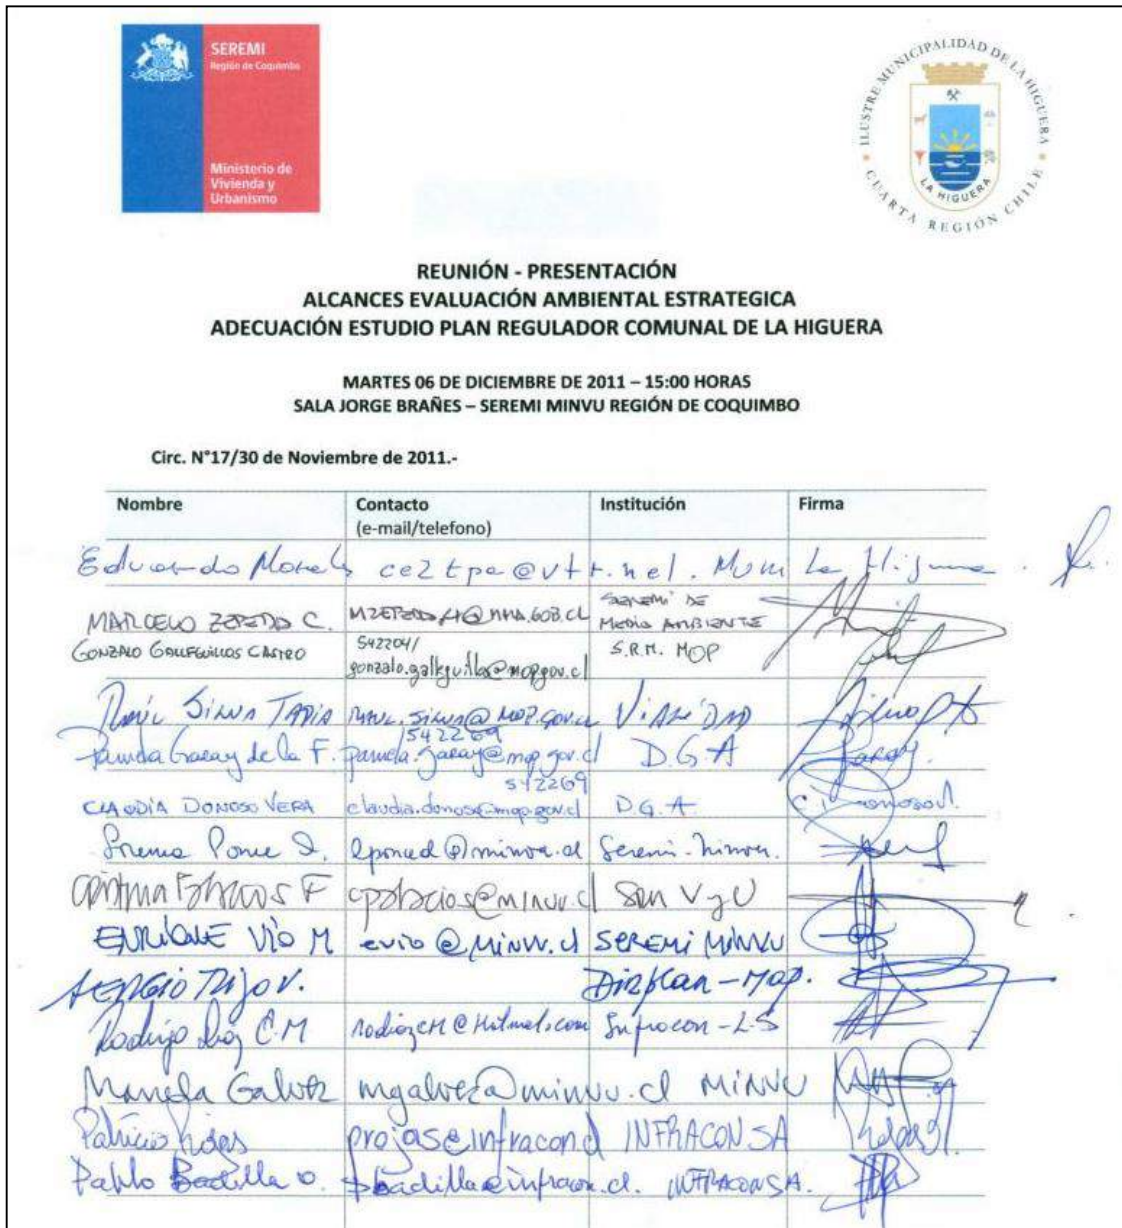 SEREMI
Región de Coquimbo
Ministerio de
Vivienda y
Urbanismo
ILUSTRE MUNICIPALIDAD DE LA HIGUERA
LA HIGUERA
CUARTA REGIÓN CHILE
REUNIÓN - PRESENTACIÓN
ALCANCES EVALUACIÓN AMBIENTAL ESTRATEGICA
ADECUACIÓN ESTUDIO PLAN REGULADOR COMUNAL DE LA HIGUERA
MARTES 06 DE DICIEMBRE DE 2011 – 15:00 HORAS
SALA JORGE BRAÑES – SEREMI MINVU REGIÓN DE COQUIMBO
Circ. N°17/30 de Noviembre de 2011.-
Nombre Contacto Institución Firma
(e-mail/telefono)
Eduardo ce2tpa@vtr.net. Muni La Higuera.
MARCELO ZEPEDA C. SEREMI DE
MEDIO AMBIENTE
GONZALO GALLEGUILLOS CASTRO 542204/ S.R.M. MOP
gonzalo.galleguillos@mop.gov.cl
Raúl SILVA TAPIA raul.silva@mop.gov.cl VIALIDAD
542269
Pamela Garay de la F. pamela.garay@mop.gov.cl D.G.A
542269
CLAUDIA DONOSO VERA claudia.donoso@mop.gov.cl D.G.A.
Ponce eponced@minvu.cl Seremi-Minvu.
cpalacios@minvu.cl V y U
ENRIQUE VÍO M evio@minvu.cl SEREMI MINVU
SERGIO Dirplan-MOP.
Rodrigo C.M Infracon
Galvez mgalvez@minvu.cl MINVU
Patricio Rojas projas@infracon.cl INFRACON SA
Pablo Badilla O. pbadilla@infracon.cl. INFRACON SA.